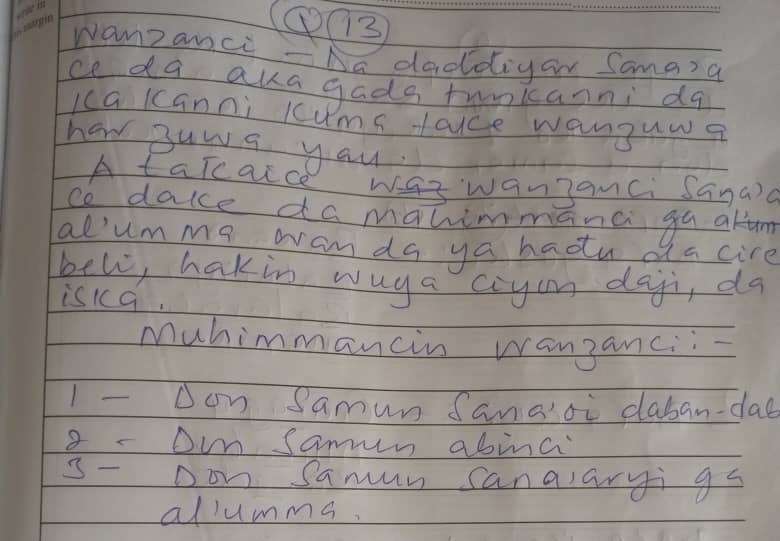 write in
margin
Q 13
Wanzanci - Da daddiyar Sana'a
ce da aka gada tun kanni da
ka kanni kuma take wanzuwa
har zuwa yau.
A takaice wanzanci Sana'a
ce dake da mahimmanci ga
al'umma wan da ya hadu da cire
beli, hakin wuya ciyon daji, da
iska.
Muhimmancin wanzanci:-
1 - Don Samun Sana'oi daban-dab
2 - Don Samun abinci
3 - Don Samun sana'aryi ga
al'umma.